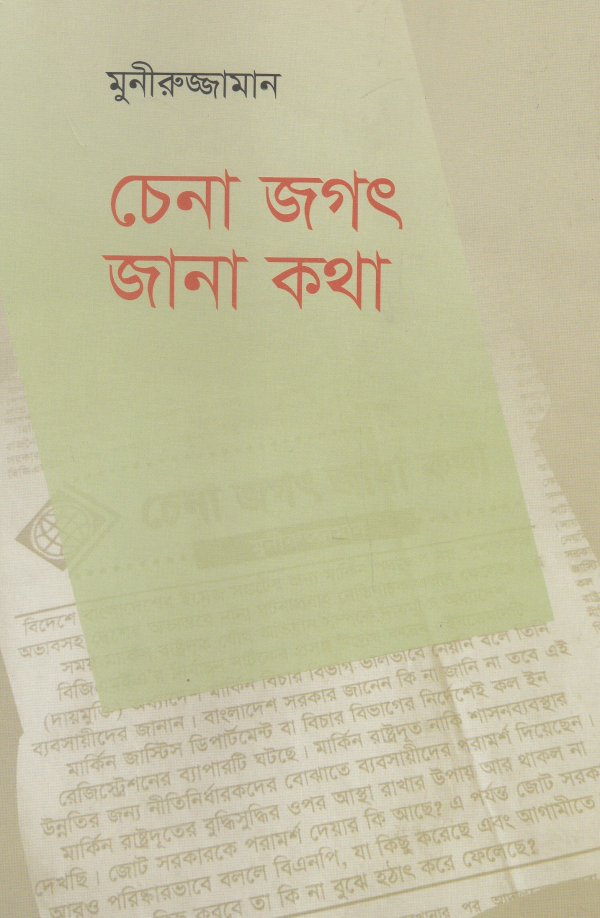 মুনীরুজ্জামান
চেনা জগৎ
জানা কথা
চেনা জগৎ জানা কথা
বিদেশে
অভাবসহ
সময়
বিজি
(দায়মুক্তি) মার্কিন বিচার বিভাগ ভালভাবে নেয়নি বলে তিনি
ব্যবসায়ীদের জানান। বাংলাদেশ সরকার জানেন কি না জানি না তবে এই
মার্কিন জাস্টিস ডিপার্টমেন্ট বা বিচার বিভাগের নির্দেশেই কল ইন
রেজিস্ট্রেশনের ব্যাপারটি ঘটছে। মার্কিন রাষ্ট্রদূত নাকি শাসনব্যবস্থার
উন্নতির জন্য নীতিনির্ধারকদের বোঝাতে ব্যবসায়ীদের পরামর্শ দিয়েছেন।
মার্কিন রাষ্ট্রদূতের বুদ্ধিসুদ্ধির ওপর আস্থা রাখার উপায় আর থাকল না
দেখছি। জোট সরকারকে পরামর্শ দেয়ার কি আছে? এ পর্যন্ত জোট সরকা
আরও পরিষ্কারভাবে বললে বিএনপি, যা কিছু করেছে এবং আগামীতে
করবে তা কি না বুঝে হঠাৎ করে ফেলেছে?